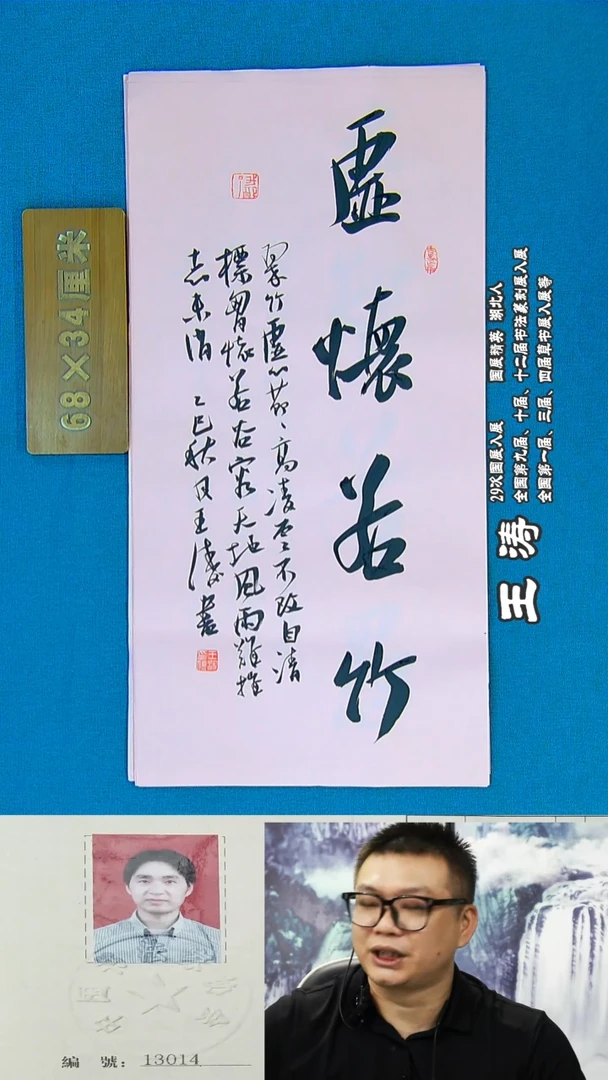 虛懷若竹
翠竹虛心節〻高凌雲不改自清
標胸懷若谷容天地風雨難摧
志未消 乙巳秋月王濤書
68×34厘米
29次国展入展 国展精英 湖北人
全国第九届、十届、十二届书法篆刻展入展
全国第一届、三届、四届草书展入展等
王涛
編 號: 13014